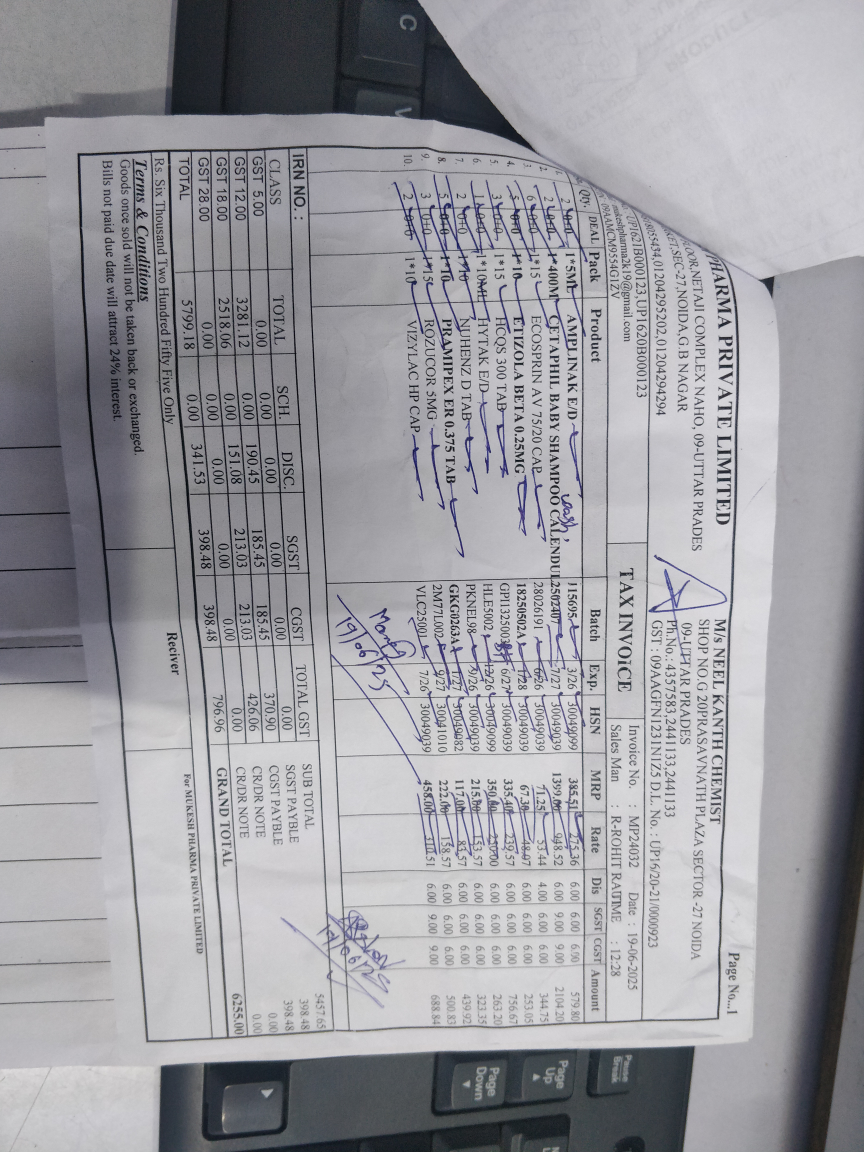 PHARMA PRIVATE LIMITED
FLOOR,NETAJI COMPLEX NAHO, 09-UTTAR PRADES
KET.SEC-27,NOIDA,G.B NAGAR
01204295202,01204294294
UP1621B000123,UP1620B000123
mukeshpharma2k19@gmail.com
09AAMCM9554G1ZV
Page No...1
M/s NEEL KANTH CHEMIST
SHOP NO.G 20PRASAVNATH PLAZA SECTOR -27 NOIDA
09-UTTAR PRADES
Ph.No.:4357583,2441133,2441133
GST : 09AAGFN1231N1Z5 D.L. No. : UP16/20-21/0000923
TAX INVOiCE
Invoice No. : MP24032 Date : 19-06-2025
Sales Man : R-ROHIT RAITIME : 12:28
Qty. DEAL Pack Product Batch Exp. HSN MRP Rate Dis SGST CGST Amount
2 0+0 1*5ML AMPLINAK E/D J15695 3/26 30049099 385.51 275.36 6.00 6.00 6.00 579.80
2. 2 0+0 1*400M CETAPHIL BABY SHAMPOO CALENDUL 2502407 7/27 30049039 1399.00 948.52 6.00 9.00 9.00 2104.20
wash,
3. 6 0+0 1*15 ECOSPRIN AV 75/20 CAP 28026191 6/26 30049039 71.25 53.44 4.00 6.00 6.00 344.75
4. 5 0+0 1*10 ETIZOLA BETA 0.25MG 18250502A 1/28 30049039 67.30 48.07 6.00 6.00 6.00 253.05
5. 3 0+0 1*15 HCQS 300 TAB GPI1325003 6/27 30049039 335.40 239.57 6.00 6.00 6.00 756.67
6. 1 0+0 1*10ML HYTAK E/D HLE5002 12/26 30049099 350.00 250.00 6.00 6.00 6.00 263.20
7. 2 0+0 1*10 NUHENZ D TAB PKNEL98 9/26 30049039 215.00 153.57 6.00 6.00 6.00 323.35
8. 5 0+0 1*10 PRAMIPEX ER 0.375 TAB GKG0263A 1/27 30049082 117.00 83.57 6.00 6.00 6.00 439.92
9. 3 0+0 1*15 ROZUCOR 5MG 2M77L002 9/27 30041010 222.00 158.57 6.00 6.00 6.00 500.83
10. 2 0+0 1*10 VIZYLAC HP CAP VLC25001 7/26 30049039 458.00 310.51 6.00 9.00 9.00 688.84
19/06/25
19/06/25
IRN NO. :
CLASS TOTAL SCH. DISC. SGST CGST TOTAL GST
GST 5.00 0.00 0.00 0.00 0.00 0.00 0.00
GST 12.00 3281.12 0.00 190.45 185.45 185.45 370.90
GST 18.00 2518.06 0.00 151.08 213.03 213.03 426.06
GST 28.00 0.00 0.00 0.00 0.00 0.00 0.00
TOTAL 5799.18 0.00 341.53 398.48 398.48 796.96
SUB TOTAL 5457.65
SGST PAYBLE 398.48
CGST PAYBLE 398.48
CR/DR NOTE 0.00
CR/DR NOTE 0.00
GRAND TOTAL 6255.00
Rs. Six Thousand Two Hundred Fifty Five Only
Terms & Conditions
Goods once sold will not be taken back or exchanged.
Bills not paid due date will attract 24% interest.
Reciver
For MUKESH PHARMA PRIVATE LIMITED
C
V
Pause Break
Page Up
Page Down